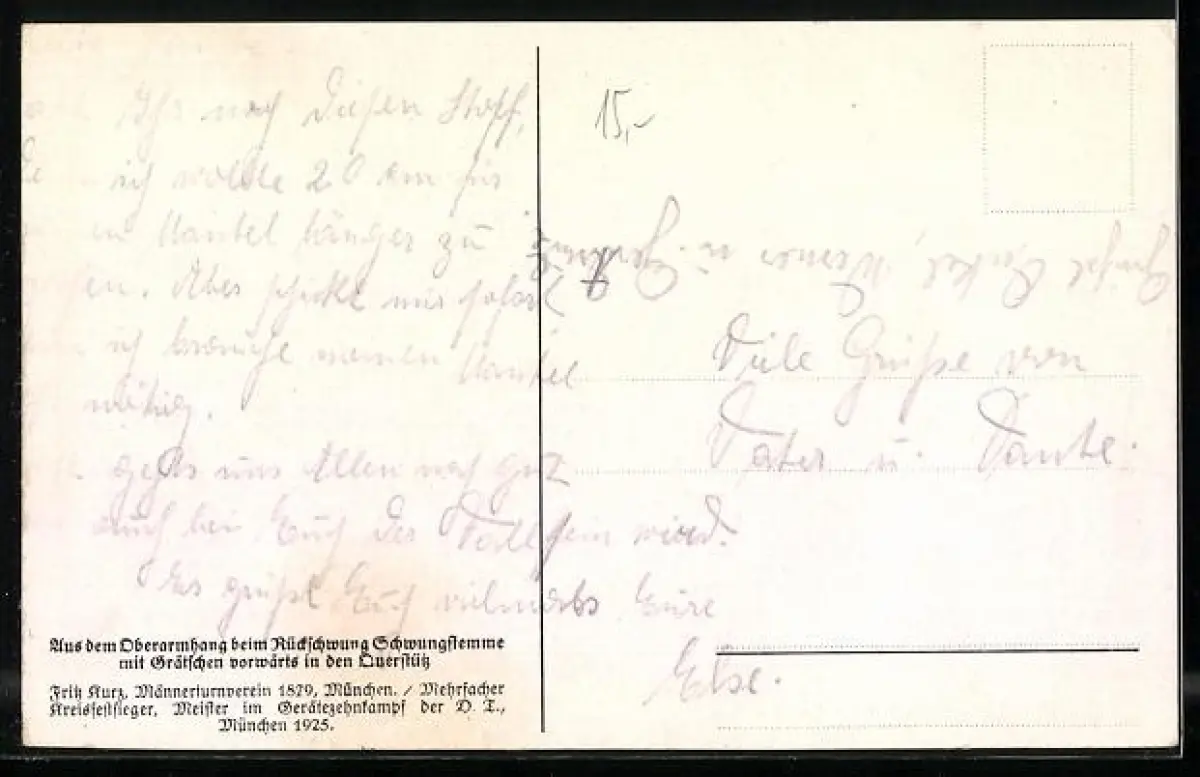 Ihr noch diesen Stoff,
ich wollte 20 cm
Mantel länger zu
en. Aber schickt mir sofort
ich brauche meinen Mantel
nötig.
geht's uns Allen noch gut
auch bei Euch der Fall sein wird.
Es grüßt Euch vielmals Eure
Else.
15,-
Grüßt Onkel, Werner u.
Viele Grüße von
Vater u. Tante.
Aus dem Oberarmhang beim Rückschwung Schwungstemme
mit Grätschen vorwärts in den Querstütz
Fritz Kurz, Männerturnverein 1879, München. / Mehrfacher
Kreisfestsieger, Meister im Gerätezehnkampf der D. T.,
München 1925.